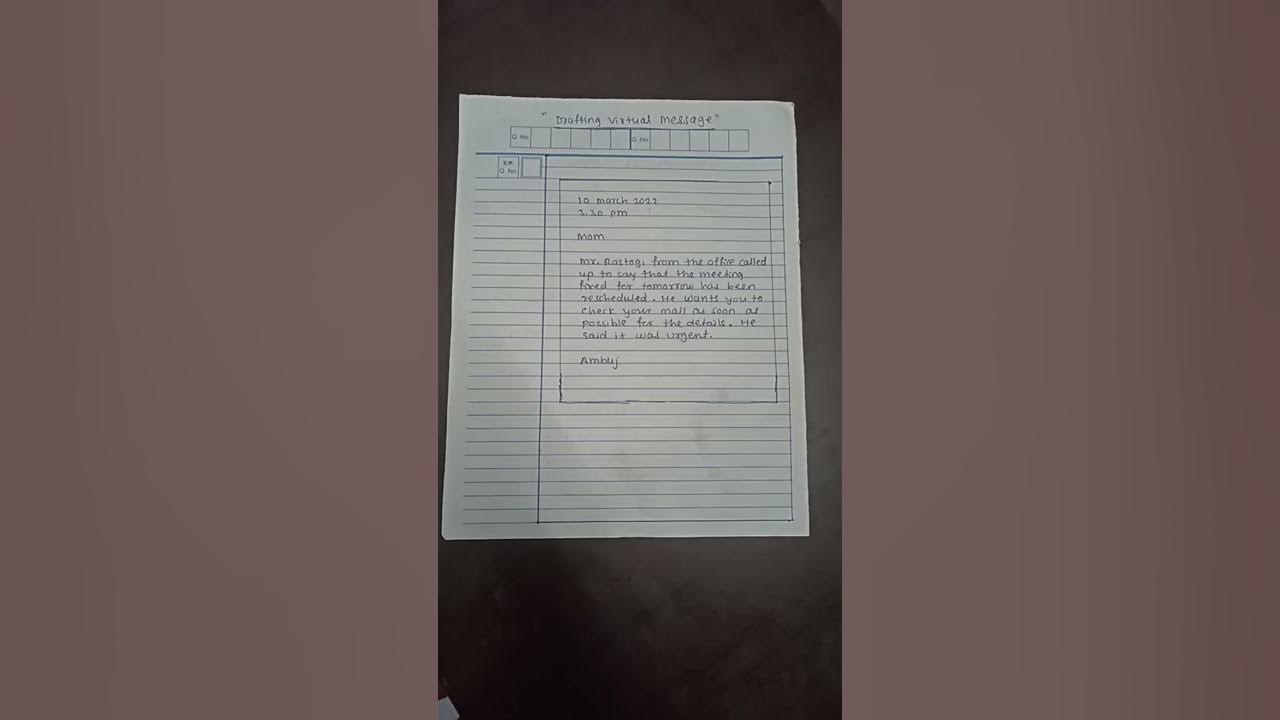 "Drafting virtual message"
Q. No. Q. No.
Q. No.
10 march 2022
pm
Mom
Mr. Rastogi from the office called
up to say that the meeting
fixed for tomorrow has been
rescheduled. He wants you to
check your mail as soon as
possible for the details. He
said it was urgent.
Ambuj